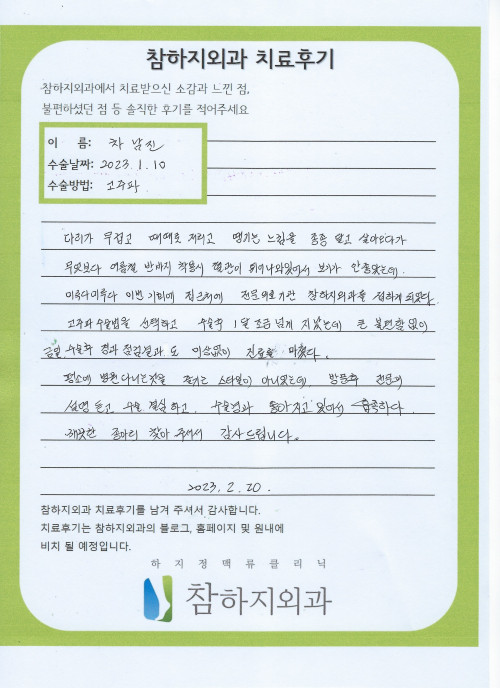 참하지외과 치료후기
참하지외과에서 치료받으신 소감과 느낀 점,
불편하셨던 점 등 솔직한 후기를 적어주세요
이 름: 차남진
수술날짜: 2023.1.10
수술방법: 고주파
다리가 무겁고 때때로 저리고 땡기는 느낌을 종종 알고 살아오다가
무엇보다 여름철 반바지 착용시 혈관이 튀어나와있어서 보기가 안좋았는데.
미루다미루다 이번 기회에 집근처에 전문의료기관 참하지외과을 접하게되었다.
고주파 수술법을 선택하고 수술후 1달 조금 넘게 지났는데 큰 불편함 없이
금일 수술후 경과 점검결과도 이상없이 진료를 마쳤다.
평소에 병원다니는것을 즐기는 스타일이 아니였는데. 방문후 전문의
설명 듣고 수술 결심하고. 수술경과 좋아지고 있어서 흡족하다.
깨끗한 종아리 찾아 주셔서 감사드립니다.
2023.2.20.
참하지외과 치료후기를 남겨 주셔서 감사합니다.
치료후기는 참하지외과의 블로그, 홈페이지 및 원내에
비치 될 예정입니다.
하지정맥류클리닉
참하지외과